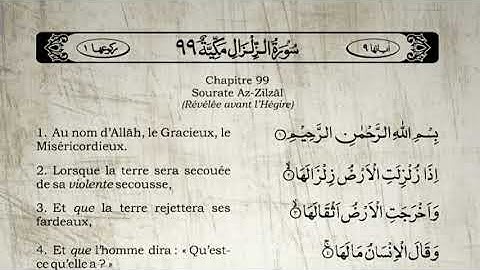 اٰیاتھا ۹ سُوۡرَةُ الزِّلۡزَالِ مَكِّیَّةٌ ۹۹ رکوعھا ۱
Chapitre 99
Sourate Az-Zilzāl
(Révélée avant l’Hégire)
1. Au nom d’Allāh, le Gracieux, le
Miséricordieux.
بِسۡمِ اللّٰهِ الرَّحۡمٰنِ الرَّحِیۡمِ
2. Lorsque la terre sera secouée
de sa violente secousse,
اِذَا زُلۡزِلَتِ الۡاَرۡضُ زِلۡزَالَهَا
3. Et que la terre rejettera ses
fardeaux,
وَاَخۡرَجَتِ الۡاَرۡضُ اَثۡقَالَهَا
4. Et que l’homme dira : « Qu’est-
ce qu’elle a ? »
وَقَالَ الۡاِنۡسَانُ مَالَهَا